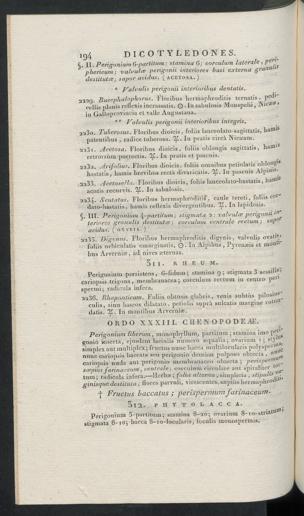 194 DICOTYLEDONES.
§. II. Perigonium 6-partitum; stamina 6; corculum laterale, peri-
phericum; valvulæ perigonii interiores basi externa granulis
destitutæ; sapor acidus. (ACETOSA.)
* Valvulis perigonii interioribus dentatis.
2229. Bucephalophorus. Floribus hermaphroditis ternatis, pedi-
cellis planis reflexis incrassatis. ☉. In sabulosis Monspelii, Nicææ,
in Galloprovincia et valle Augustana.
** Valvulis perigonii interioribus integris.
2230. Tuberosus. Floribus dioicis, foliis lanceolato-sagittatis, hamis
patentibus, radice tuberosa. ♃. In pratis circà Nicæam.
2231. Acetosa. Floribus dioicis, foliis oblongis sagittatis, hamis
retrorsùm porrectis. ♃. In pratis et pascuis.
2232. Arifolius. Floribus dioicis, foliis omnibus petiolatis oblongis
hastatis, hamis brevibus rectè divaricatis. ♃. In pascuis Alpinis.
2233. Acetosella. Floribus dioicis, foliis lanceolato-hastatis, hamis
acutis recurvis. ♃. In sabulosis.
2234. Scutatus. Floribus hermaphroditis, caule tereti, foliis cor-
dato-hastatis, hamis reflexis divergentibus. ♃. In lapidosis.
§. III. Perigonium 4-partitum; stigmata 2; valvulæ perigonii in-
teriores granulis destitutæ; corculum centrale rectum; sapor
acidus. (OXYRIA.)
2235. Digynus. Floribus hermaphroditis digynis, valvulis ovatis,
foliis orbiculatis emarginatis. ☉. In Alpibus, Pyrenæis et monti-
bus Arverniæ, ad nives æternas.
511. RHEUM.
Perigonium persistens, 6-fidum; stamina 9; stigmata 3 sessilia;
cariopsis trigona, membranacea; corculum rectum in centro peri-
spermi; radicula infera.
2236. Rhaponticum. Foliis obtusis glabris, venis subtùs pilosius-
culis, sinu baseos dilatato, petiolis suprà sulcatis margine rotun-
datis. ♃. In montibus Arverniæ.
ORDO XXXIII. CHENOPODEÆ.
Perigonium liberum, monophyllum, partitum; stamina imo peri-
gonio inserta, ejusdem laciniis numero æqualia; ovarium 1; stylus
simplex aut multiplex; fructus nunc bacca multilocularis polysperma,
nunc cariopsis baccata seu perigonio demùm pulposo obtecta, nunc
cariopsis nuda aut perigonio membranaceo obtecta; perispermum
sæpius farinaceum, centrale; corculum circulare aut spiraliter tor-
tum; radicula infera.—Herbæ; folia alterna, simplicia; stipulis va-
ginisque destituta; flores parvuli, virescentes, sæpius hermaphroditi.
† Fructus baccatus; perispermum farinaceum.
512. PHYTOLACCA.
Perigonium 5-partitum; stamina 8-20; ovarium 8-10-striatum;
stigmata 8-10; bacca 8-10-locularis, loculis monospermis.